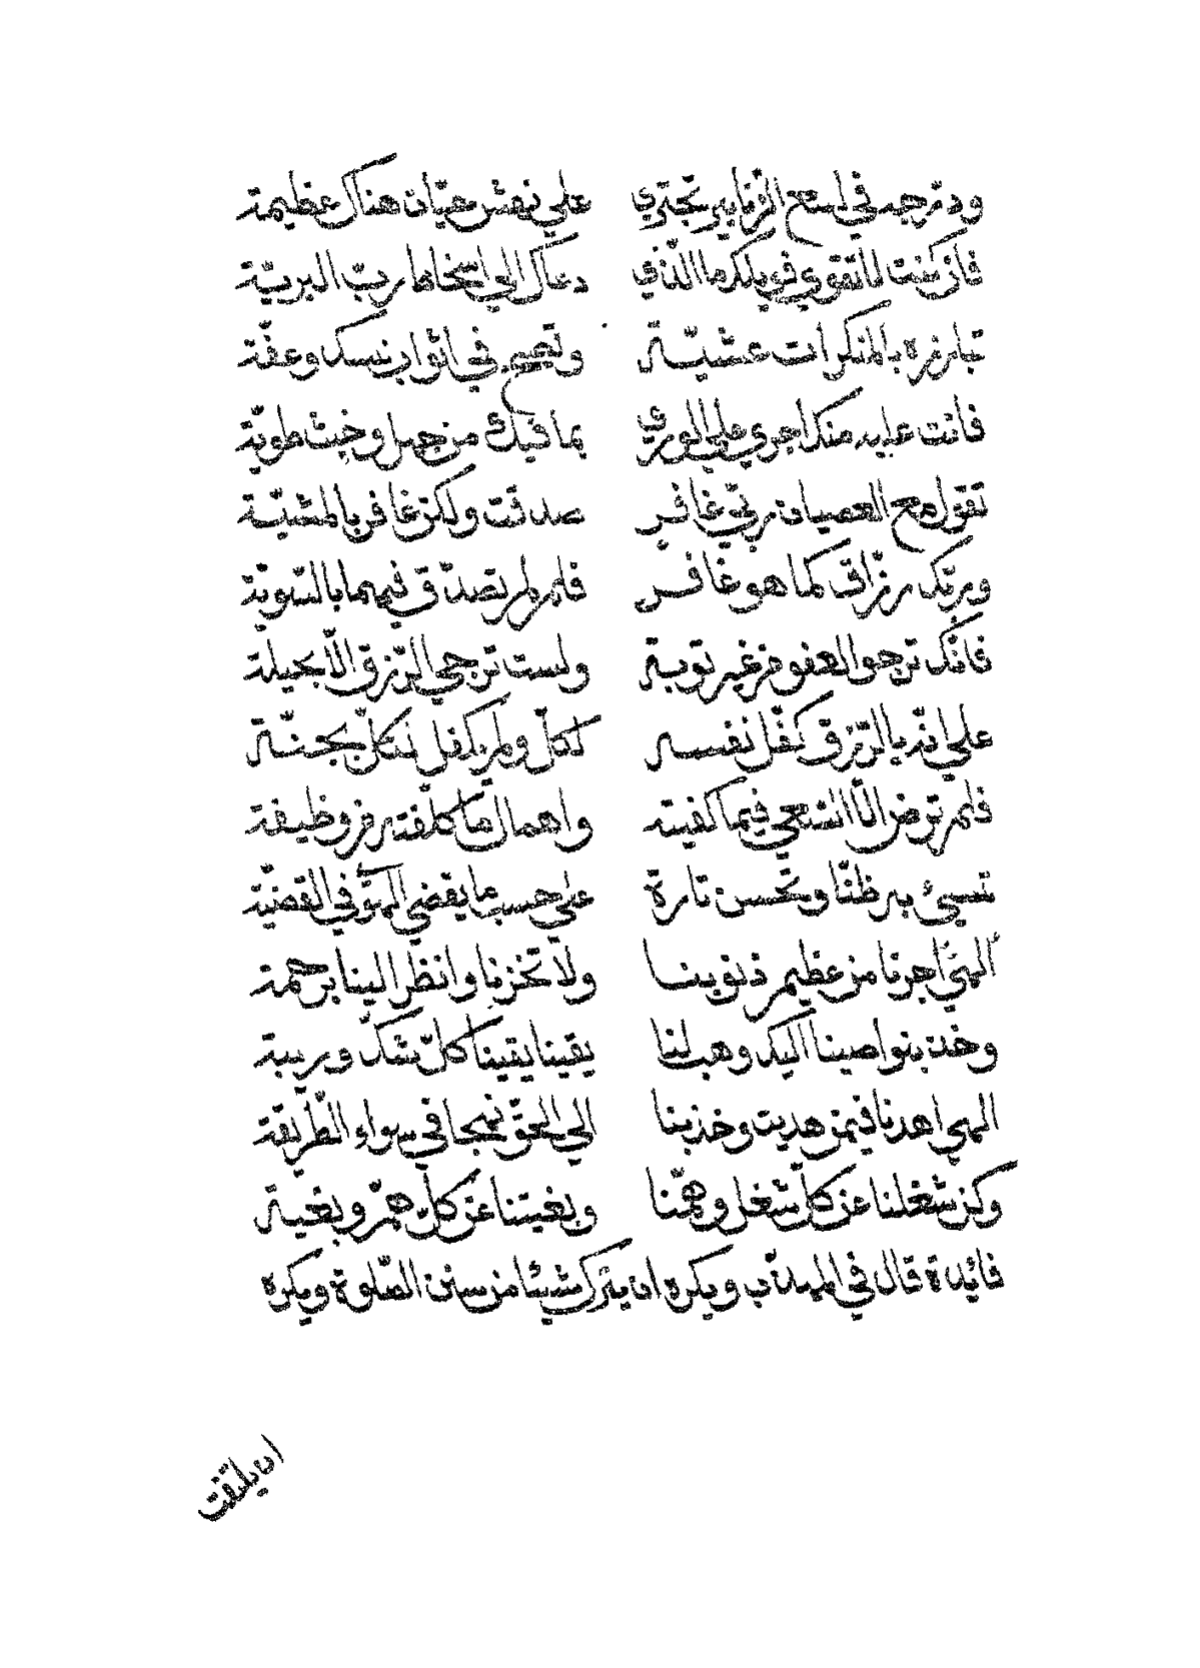 ودرجه في لسع الزنابير تجتري على نهش حيات هناك عظيمة
فان كنت لا تقوى فويلك ما الذي دعاك الى اسخاط رب البرية
تبارزه بالمنكرات عشيّة وتصبح في اثواب نسك وعفّة
فانت عليه منك اجرى على الورى بما فيك من جهل وخبث طويّة
تقول مع العصيان ربّي غافر صدقت ولكن غافر بالمشيّة
وربّك رزّاق كما هو غافر فلم لم تصدّق فيهما بالسّويّة
فانّك ترجو العفو من غير توبة ولست ترجي الرّزق الّا بحيلة
على انّه بالرّزق كفّل نفسه لكلّ ولم يكفل لكلّ بجنّة
فلم ترض الّا السّعي فيما كفيته واهمال ما كلّفته من وظيفة
تسيئ به ظنّا وتحسن تارة على حسب ما يقضي الهوى في القضيّة
الهي اجرنا من عظيم ذنوبنا ولا تخزنا وانظر الينا برحمة
وخذ بنواصينا اليك وهب لنا يقينا يقينا كلّ شكّ وريبة
الهي اهدنا فيمن هديت وخذ بنا الى الحقّ نهجا في سواء الطّريقة
وكن شغلنا عن كلّ شغل وهمّنا وبغيتنا عن كلّ همّ وبغية
فائدة قال في المهذّب ويكره ان يترك شيئا من سنن الصّلوة ويكره
ان يلتفت